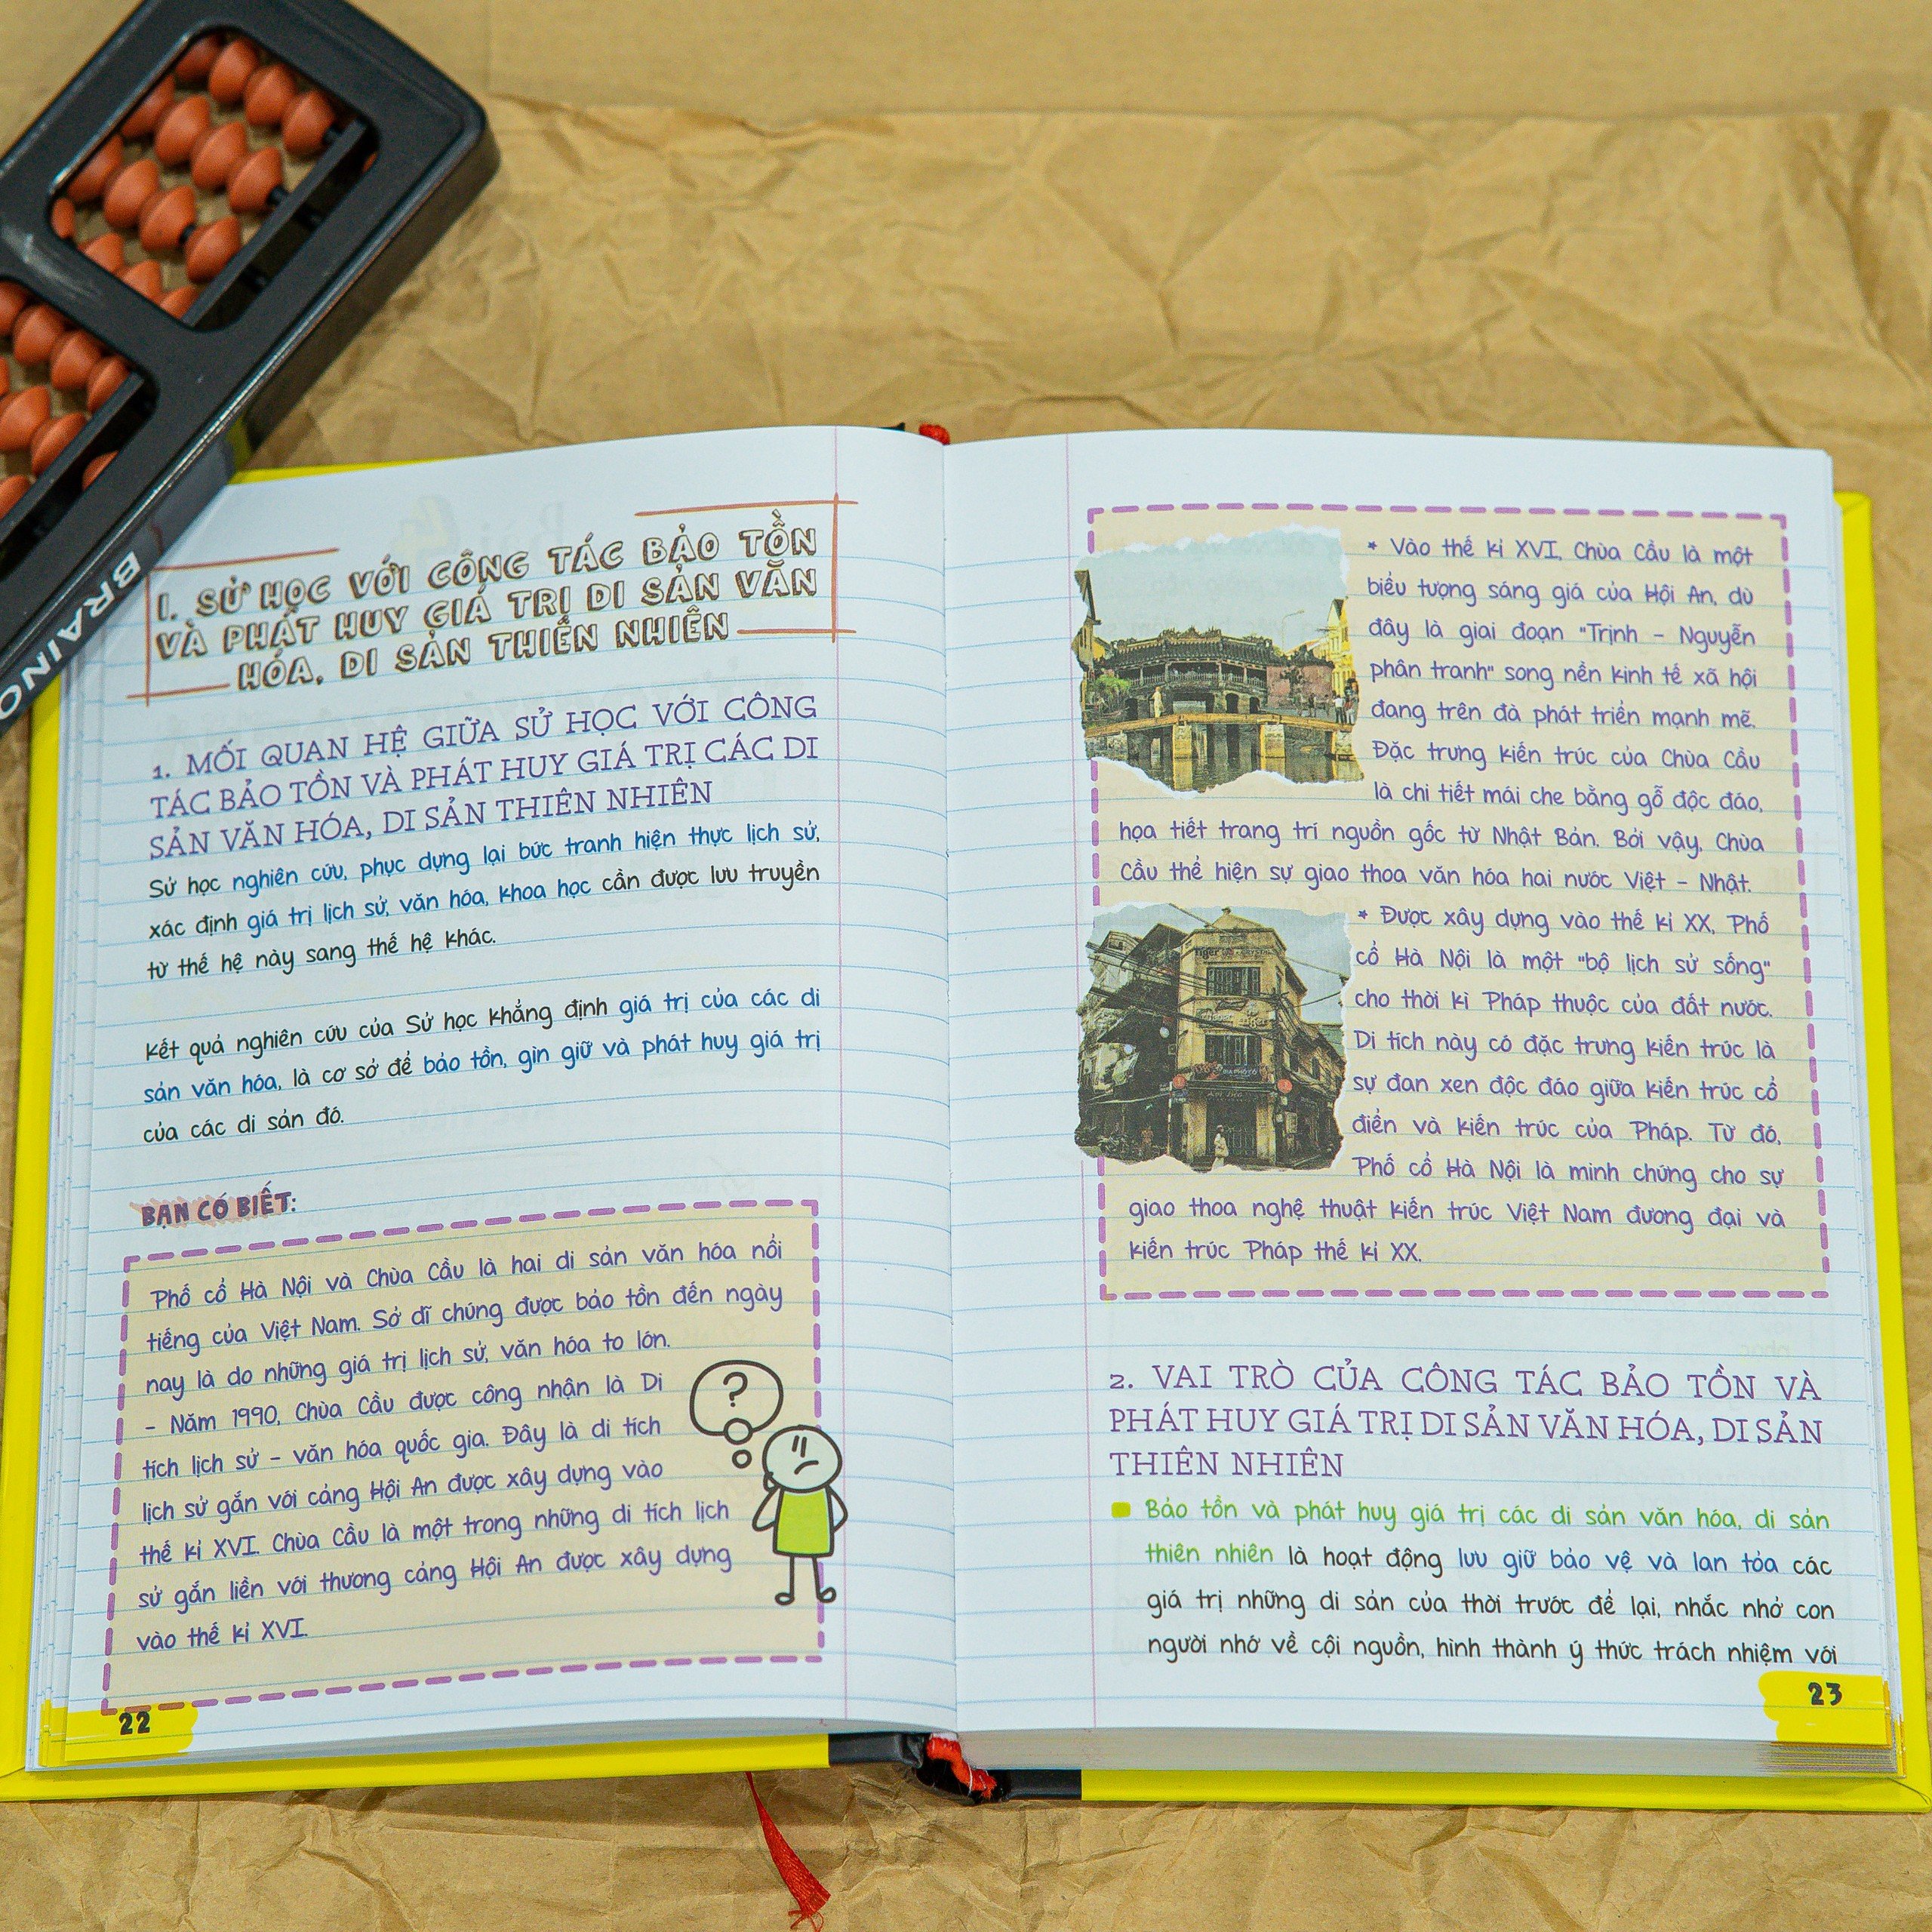 BRAINO
I. SỬ HỌC VỚI CÔNG TÁC BẢO TỒN
VÀ PHÁT HUY GIÁ TRỊ DI SẢN VĂN
HÓA, DI SẢN THIÊN NHIÊN
1. MỐI QUAN HỆ GIỮA SỬ HỌC VỚI CÔNG
TÁC BẢO TỒN VÀ PHÁT HUY GIÁ TRỊ CÁC DI
SẢN VĂN HÓA, DI SẢN THIÊN NHIÊN
Sử học nghiên cứu, phục dựng lại bức tranh hiện thực lịch sử,
xác định giá trị lịch sử, văn hóa, khoa học cần được lưu truyền
từ thế hệ này sang thế hệ khác.
Kết quả nghiên cứu của Sử học khẳng định giá trị của các di
sản văn hóa, là cơ sở để bảo tồn, gìn giữ và phát huy giá trị
của các di sản đó.
BẠN CÓ BIẾT:
Phố cổ Hà Nội và Chùa Cầu là hai di sản văn hóa nổi
tiếng của Việt Nam. Sở dĩ chúng được bảo tồn đến ngày
nay là do những giá trị lịch sử, văn hóa to lớn.
- Năm 1990, Chùa Cầu được công nhận là Di
tích lịch sử - văn hóa quốc gia. Đây là di tích
lịch sử gắn với cảng Hội An được xây dựng vào
thế kỉ XVI. Chùa Cầu là một trong những di tích lịch
sử gắn liền với thương cảng Hội An được xây dựng
vào thế kỉ XVI.
?
22
* Vào thế kỉ XVI, Chùa Cầu là một
biểu tượng sáng giá của Hội An, dù
đây là giai đoạn "Trịnh - Nguyễn
phân tranh" song nền kinh tế xã hội
đang trên đà phát triển mạnh mẽ.
Đặc trưng kiến trúc của Chùa Cầu
là chi tiết mái che bằng gỗ độc đáo,
họa tiết trang trí nguồn gốc từ Nhật Bản. Bởi vậy, Chùa
Cầu thể hiện sự giao thoa văn hóa hai nước Việt - Nhật.
* Được xây dựng vào thế kỉ XX, Phố
cổ Hà Nội là một "bộ lịch sử sống"
cho thời kì Pháp thuộc của đất nước.
Di tích này có đặc trưng kiến trúc là
sự đan xen độc đáo giữa kiến trúc cổ
điển và kiến trúc của Pháp. Từ đó,
Phố cổ Hà Nội là minh chứng cho sự
giao thoa nghệ thuật kiến trúc Việt Nam đương đại và
kiến trúc Pháp thế kỉ XX.
Tiger
2. VAI TRÒ CỦA CÔNG TÁC BẢO TỒN VÀ
PHÁT HUY GIÁ TRỊ DI SẢN VĂN HÓA, DI SẢN
THIÊN NHIÊN
Bảo tồn và phát huy giá trị các di sản văn hóa, di sản
thiên nhiên là hoạt động lưu giữ bảo vệ và lan tỏa các
giá trị những di sản của thời trước để lại, nhắc nhở con
người nhớ về cội nguồn, hình thành ý thức trách nhiệm với
23